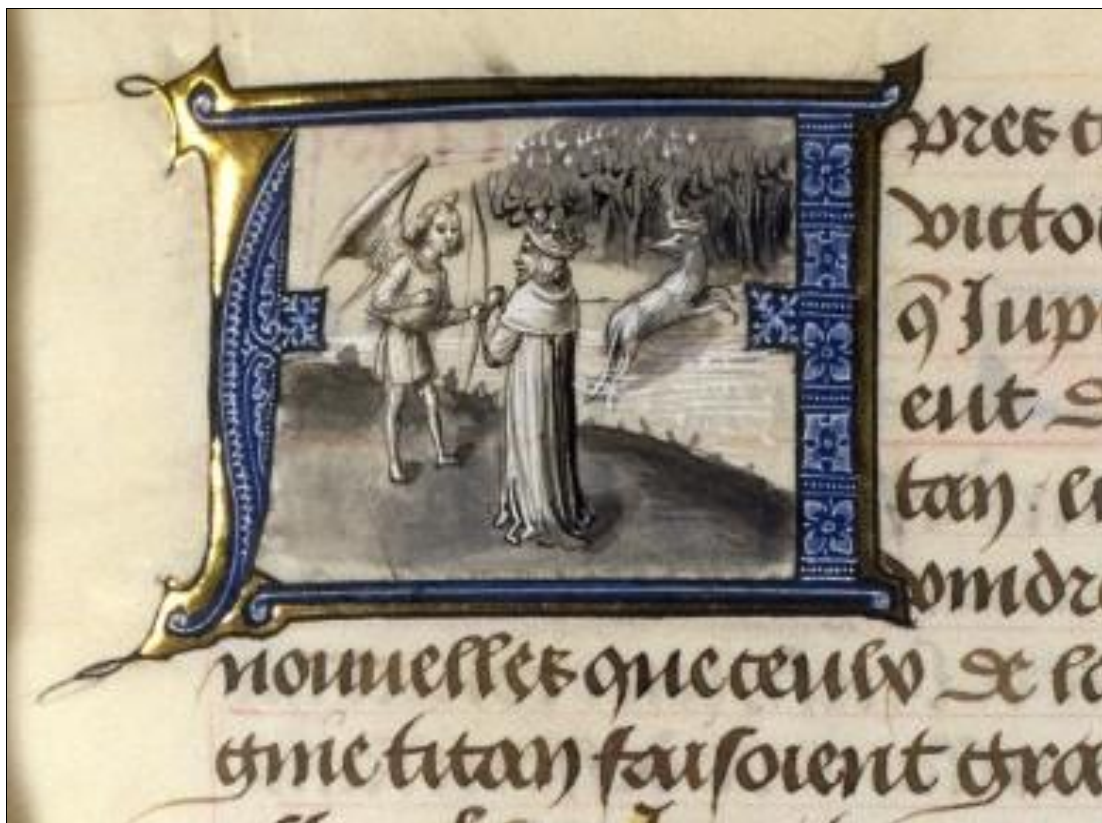 Apres
victo
q̄ Jup
eut
tan
vindre
nouuelles que ceulx de la
gnie titan faisoient gra